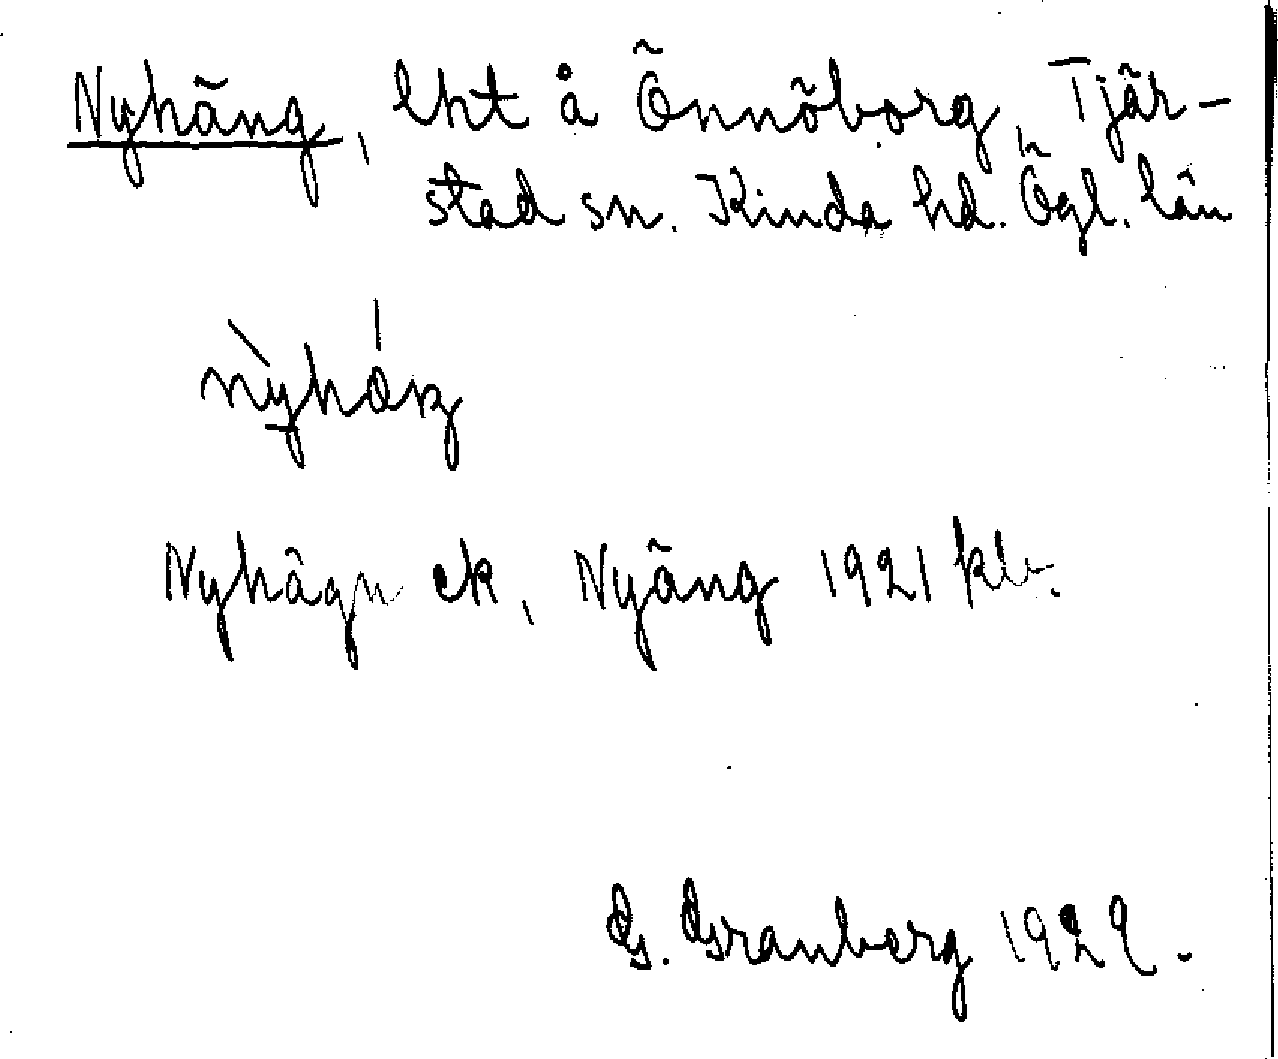 Nyhäng, lht å Önnöborg, Tjär-
stad sn. Kinda hd. Ögl. län
Nyhägn ek, Nyäng 1921 klr.
G. Granberg 1929.